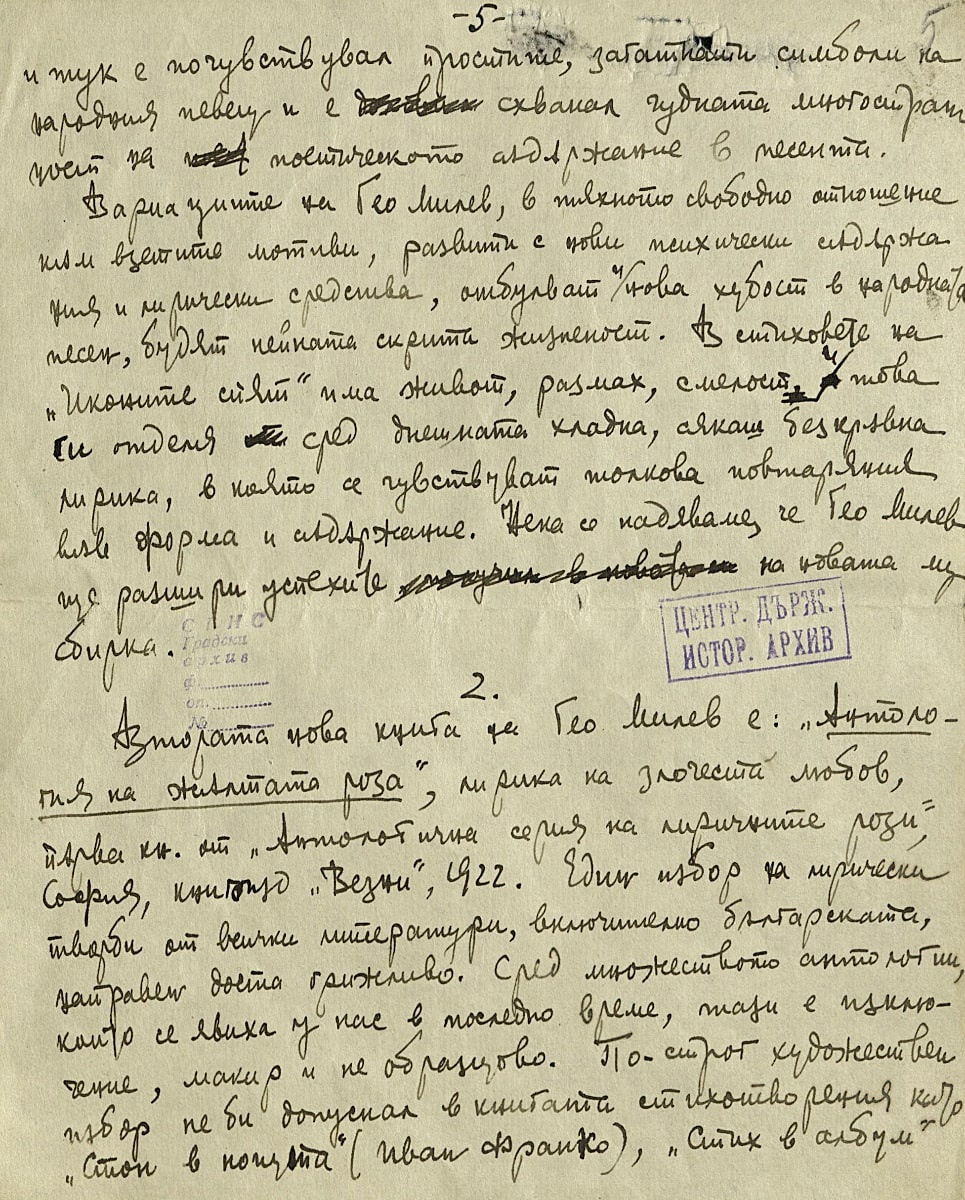 -5-
5
и тук е почувствувал простите, загатнати символи на
народния певец и е схванал чудната многостран
ност на поетическото съдържание в песента.
Вариациите на Гео Милев, в тяхното свободно отношение
към взетите мотиви, развити с нови психически съдържа
ния и лирически средства, отбулват нова хубост в народната
песен, будят нейната скрита жизненост. В стиховете на
„Иконите спят“ има живот, размах, смелост, и това
ги отделя сред днешната хладна, сякаш безкръвна
лирика, в която се чувствуват толкова повтаряния
във форма и съдържание. Нека се надяваме, че Гео Милев
ще разшири успехите на новата му
сбирка.
ЦЕНТР. ДЪРЖ.
ИСТОР. АРХИВ
Градски
архив
ф.
оп.
№
2.
Втората нова книга на Гео Милев е: „Антоло-
гия на жълтата роза“, лирика на злочеста любов,
първа кн. от „Антологична серия на лиричните рози“,
София, книгоизд „Везни“, 1922. Един избор на лирически
творби от всички литератури, включително българската,
направен доста грижливо. Сред множеството антологии,
които се явиха у нас в последно време, тази е изклю-
чение, макар и не образцово. По-строг художествен
избор не би допуснал в книгата стихотворения като
„Стон в нощта“ (Иван Франко), „Стих в албум“